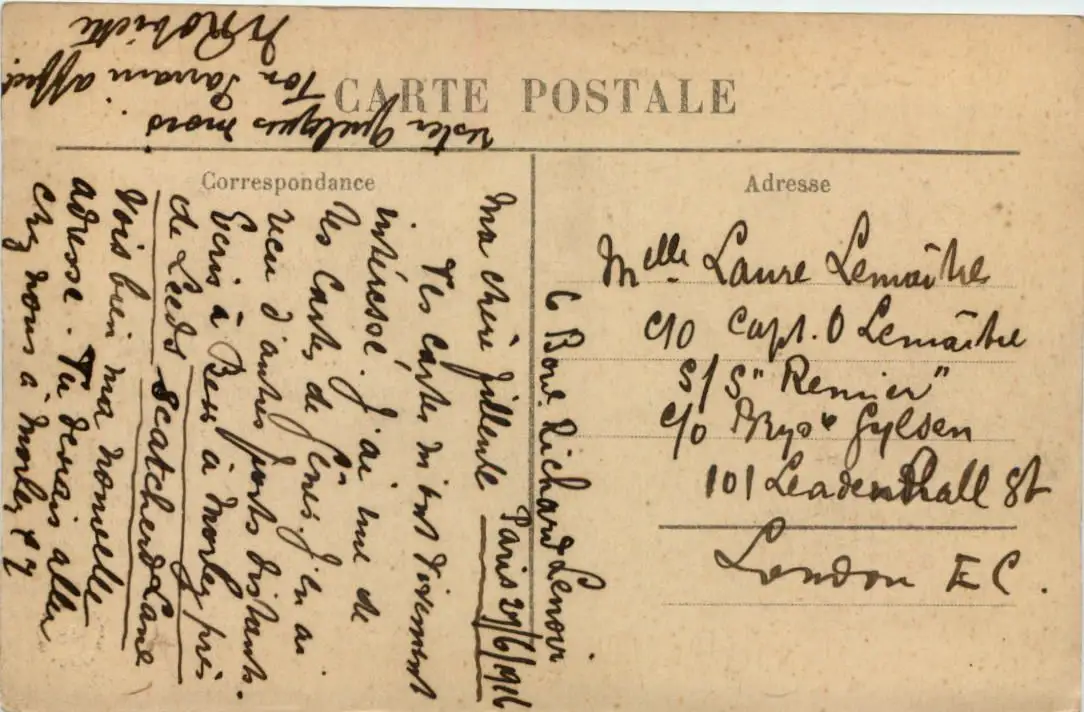 CARTE POSTALE
Correspondance
Adresse
6 Boul. Richard Lenoir
Paris 27/6/1916
Ma chère fillente
Tes cartes m'ont vivement
intéressé. J'ai vue de
tes cartes de Gênes. J'en ai
recu d'autres ports distants.
Ecris à Bess à Morley près
de Leeds Scatcherd Lane
Vois bien ma nouvelle
adresse. Tu devrais aller
chez nous à Morley & y
rester quelques mois
Ton Parrain affect.
Melle Laure Lemaître
c/o Capt. O Lemaître
S/S "Remier"
c/o Brys & Gylsen
101 Leadenhall St
London EC.